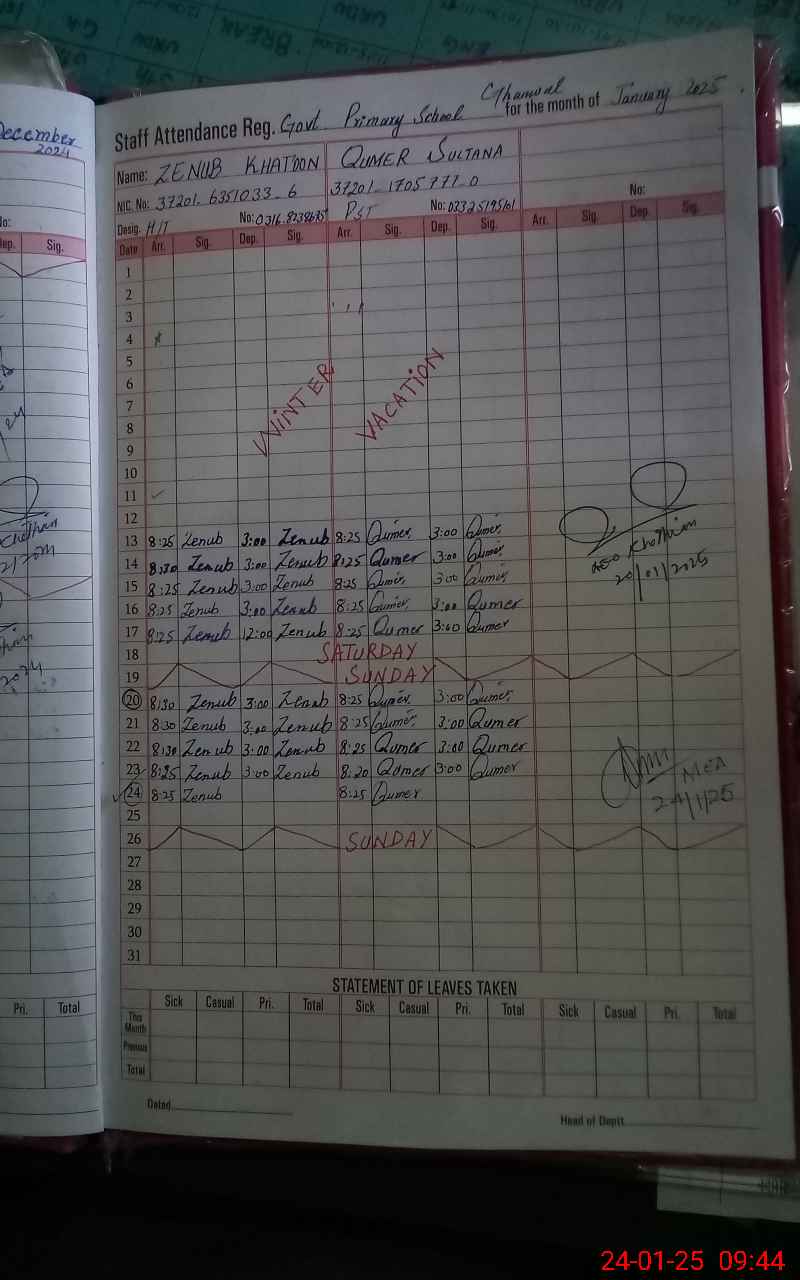 December
2024
Staff Attendance Reg. Govt Primary School Ghamwal for the month of January 2025
Name: ZENUB KHATOON QUMER SULTANA
NIC. No: 37201-6351033-6 37201-1705777-0 No:
Desig. H/T No: PST No:
Date Arr. Sig. Dep. Sig. Arr. Sig. Dep. Sig. Arr. Sig. Dep. Sig.
Dep. Sig.
1
2
3
4
5
6
7
8
9
10
11
WINTER VACATION
12
13 8:25 Zenub 3:00 Zenub 8:25 Qumer 3:00 Qumer
14 8:30 Zenub 3:00 Zenub 8:25 Qumer 3:00 Qumer
15 8:25 Zenub 3:00 Zenub 8:25 Qumer 3:00 Qumer
16 8:25 Zenub 3:00 Zenub 8:25 Qumer 3:00 Qumer
17 8:25 Zenub 12:00 Zenub 8:25 Qumer 3:00 Qumer
20/01/2025
18 SATURDAY
19 SUNDAY
20 8:30 Zenub 3:00 Zenub 8:25 Qumer 3:00 Qumer
21 8:30 Zenub 3:00 Zenub 8:25 Qumer 3:00 Qumer
22 8:30 Zenub 3:00 Zenub 8:25 Qumer 3:00 Qumer
23 8:25 Zenub 3:00 Zenub 8:20 Qumer 3:00 Qumer
MEA
24 8:25 Zenub 8:25 Qumer
24/1/25
25
26 SUNDAY
27
28
29
30
31
STATEMENT OF LEAVES TAKEN
Sick Casual Pri. Total Sick Casual Pri. Total Sick Casual Pri. Total
Pri. Total
This Month
Previous
Total
Dated
Head of Deptt.
24-01-25 09:44